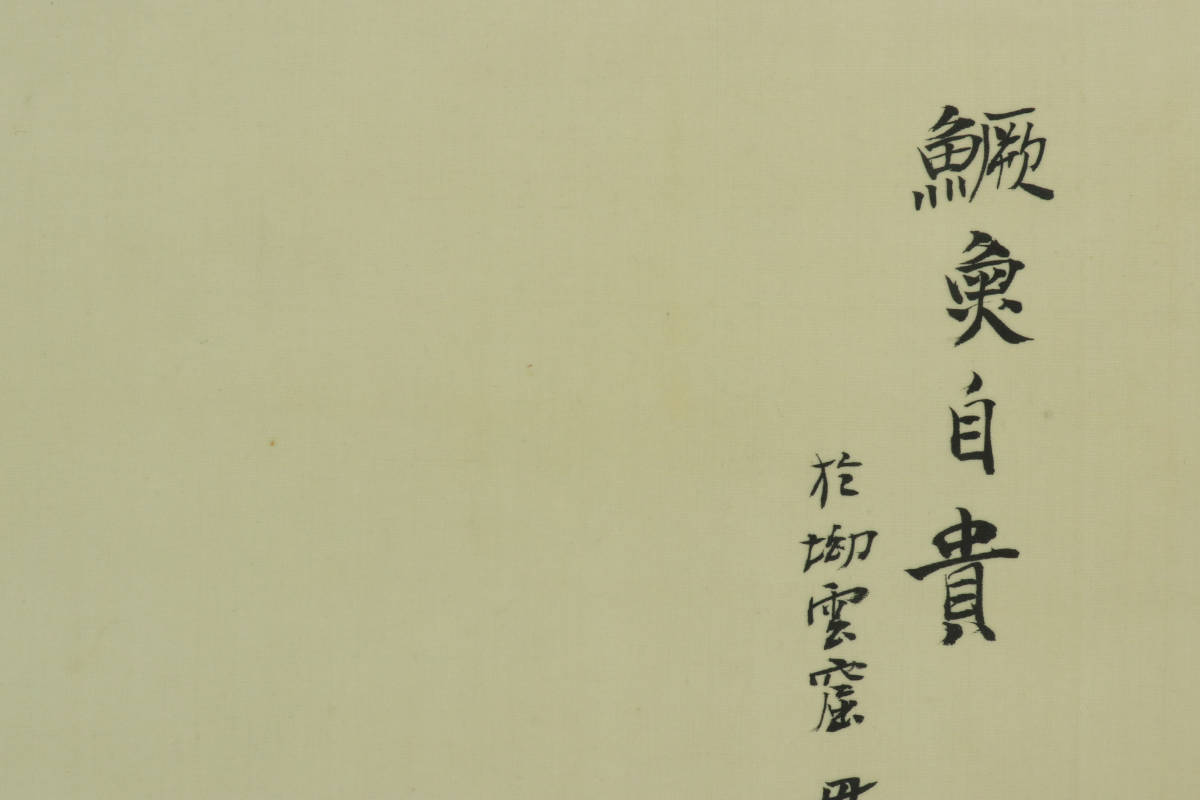 鱖魚自貴
於坳雲窟